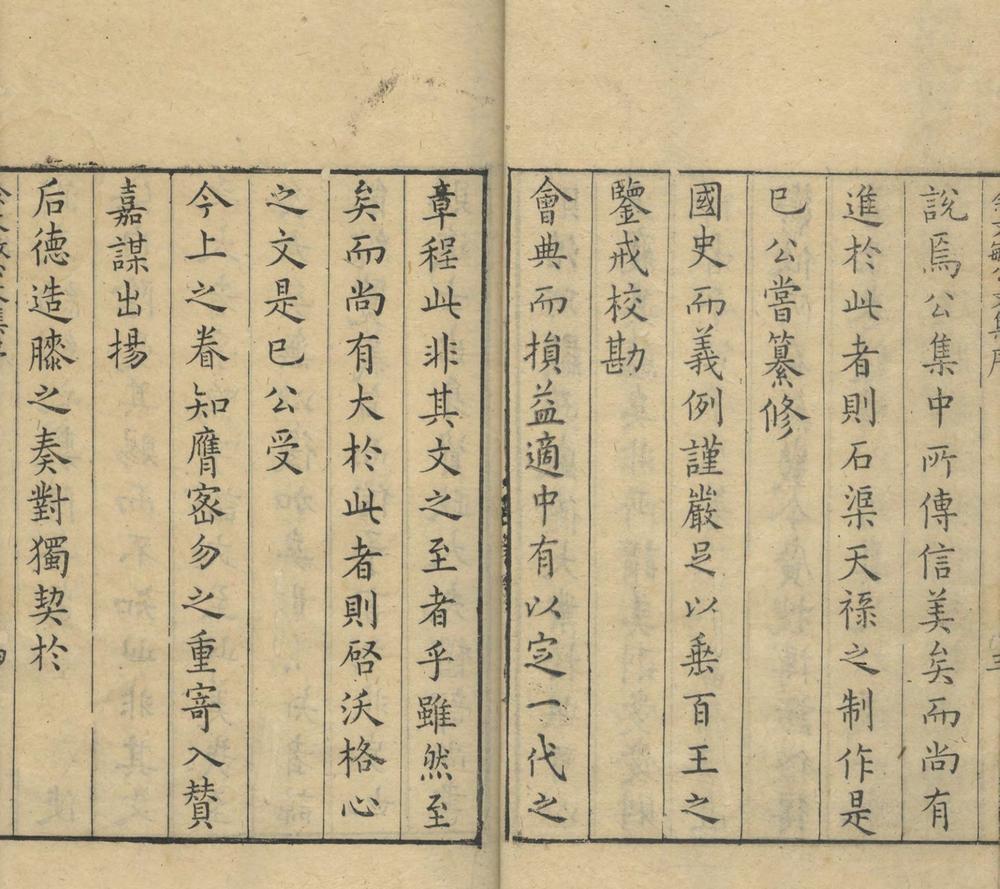 說焉公集中所傳信美矣而尚有
進於此者則石渠天祿之制作是
已公嘗纂修
國史而義例謹嚴足以垂百王之
鑒戒校勘
會典而損益適中有以定一代之
章程此非其文之至者乎雖然至
矣而尚有大於此者則啓沃格心
之文是已公受
今上之眷知膺密勿之重寄入贊
嘉謀出揚
后德造膝之奏對獨契於